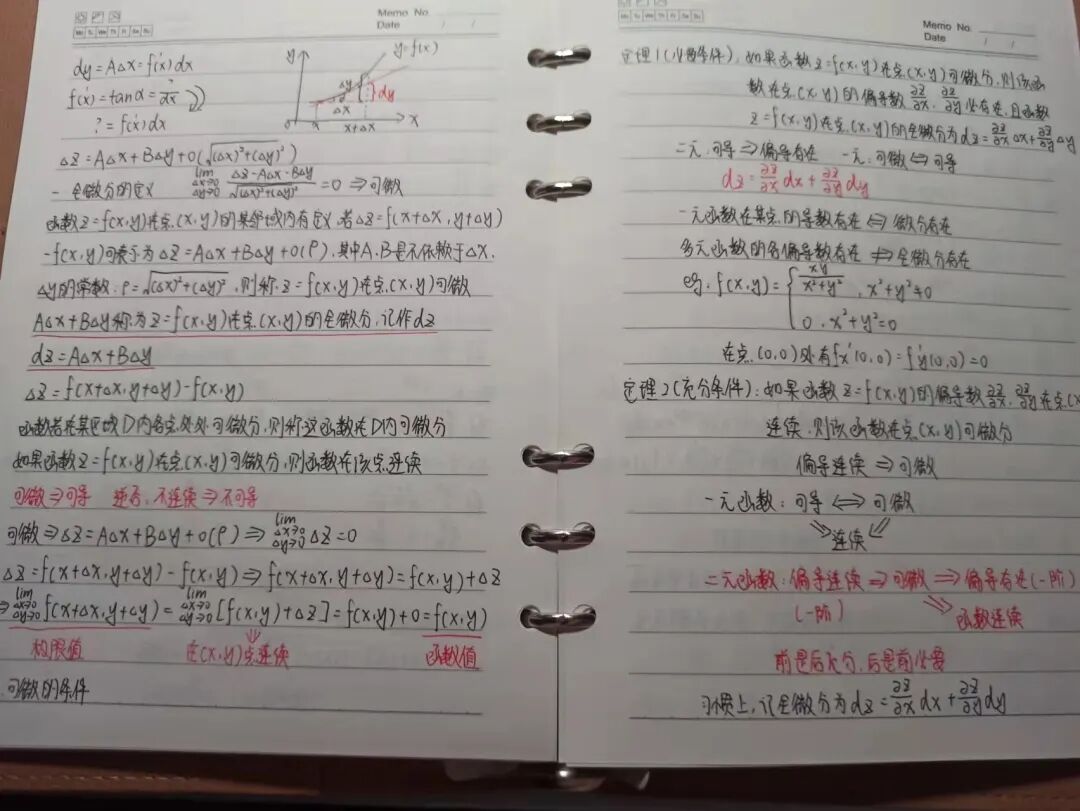 Memo No.
Mo Tu We Th Fr Sa Su
Date / /
dy=AΔx=f'(x)dx
f'(x)=tanα=?/dx
?=f'(x)dx
y
y=f(x)
Δy
dy
Δx
0 x x+Δx x
Δz=AΔx+BΔy+o(√((Δx)²+(Δy)²))
一.全微分的定义 lim Δx→0 Δy→0 (Δz-AΔx-BΔy)/√((Δx)²+(Δy)²)=0 ⇒可微
函数z=f(x,y)在点(x,y)的某邻域内有定义.若Δz=f(x+Δx,y+Δy)
-f(x,y)可表示为Δz=AΔx+BΔy+o(ρ).其中A.B是不依赖于Δx.
Δy的常数.ρ=√((Δx)²+(Δy)²).则称z=f(x,y)在点(x,y)可微
AΔx+BΔy称为z=f(x,y)在点(x,y)的全微分,记作dz
dz=AΔx+BΔy
Δz=f(x+Δx,y+Δy)-f(x,y)
函数若在某区域D内各点处处可微分,则称这函数在D内可微分
如果函数z=f(x,y)在点(x,y)可微分,则函数在该点连续
可微⇒可导 逆否:不连续⇒不可导
可微⇒Δz=AΔx+BΔy+o(ρ)⇒lim Δx→0 Δy→0 Δz=0
Δz=f(x+Δx,y+Δy)-f(x,y)⇒f(x+Δx,y+Δy)=f(x,y)+Δz
⇒lim Δx→0 Δy→0 f(x+Δx,y+Δy)=lim Δx→0 Δy→0 [f(x,y)+Δz]=f(x,y)+0=f(x,y)
极限值 ⇓ 在(x,y)点连续 函数值
可微的条件
Mo Tu We Th Fr Sa Su
Memo No.
Date / /
定理1(必要条件).如果函数z=f(x,y)在点(x,y)可微分,则该函
数在点(x,y)的偏导数∂z/∂x.∂z/∂y必存在,且函数
z=f(x,y)在点(x,y)的全微分为dz=∂z/∂x Δx+∂z/∂y Δy
二元:可导⇒偏导存在 一元:可微⇔可导
dz=∂z/∂x dx+∂z/∂y dy
一元函数在某点的导数存在⇔微分存在
多元函数的各偏导数存在⇎全微分存在
eg. f(x,y)={ xy/(x²+y²) , x²+y²≠0
0 , x²+y²=0
在点(0,0)处有fx'(0,0)=fy'(0,0)=0
定理2(充分条件):如果函数z=f(x,y)的偏导数∂z/∂x.∂z/∂y在点(x
连续.则该函数在点(x,y)可微分
偏导连续⇒可微
一元函数:可导⇔可微
连续
二元函数:偏导连续⇒可微⇒偏导存在(一阶)
(一阶) 函数连续
前是后充分,后是前必要
习惯上,记全微分为dz=∂z/∂x dx+∂z/∂y dy